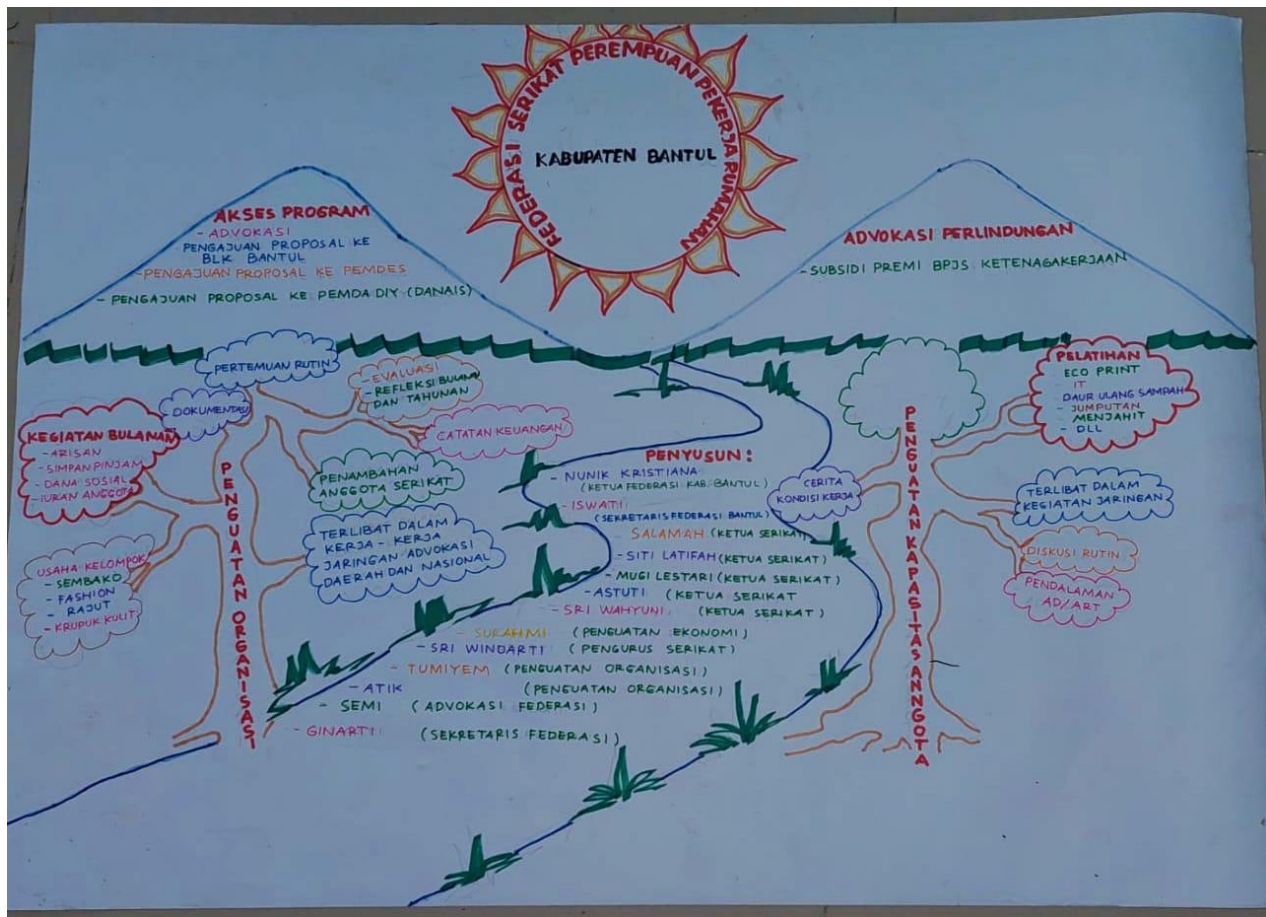 FEDERASI SERIKAT PEREMPUAN PEKERJA RUMAHAN
KABUPATEN BANTUL
AKSES PROGRAM
- ADVOKASI
PENGAJUAN PROPOSAL KE
BLK BANTUL
- PENGAJUAN PROPOSAL KE PEMDES
- PENGAJUAN PROPOSAL KE PEMDA DIY (DANAIS)
ADVOKASI PERLINDUNGAN
- SUBSIDI PREMI BPJS KETENAGAKERJAAN
PERTEMUAN RUTIN
DOKUMENTASI
- EVALUASI
- REFLEKSI BULANAN
DAN TAHUNAN
CATATAN KEUANGAN
KEGIATAN BULANAN
- ARISAN
- SIMPAN PINJAM
- DANA SOSIAL
- IURAN ANGGOTA
PENAMBAHAN
ANGGOTA SERIKAT
TERLIBAT DALAM
KERJA - KERJA
JARINGAN ADVOKASI
DAERAH DAN NASIONAL
USAHA KELOMPOK
- SEMBAKO
- FASHION
- RAJUT
- KRUPUK KULIT
PENGUATAN ORGANISASI
PENYUSUN :
- NUNIK KRISTIANA
(KETUA FEDERASI KAB. BANTUL)
- ISWATI
(SEKRETARIS FEDERASI BANTUL)
- SALAMAH (KETUA SERIKAT)
- SITI LATIFAH (KETUA SERIKAT)
- MUGI LESTARI (KETUA SERIKAT)
- ASTUTI (KETUA SERIKAT
- SRI WAHYUNI (KETUA SERIKAT)
- SUKAHMI (PENGUATAN EKONOMI)
- SRI WINDARTI (PENGURUS SERIKAT)
- TUMIYEM (PENGUATAN ORGANISASI)
- ATIK (PENGUATAN ORGANISASI)
- SEMI (ADVOKASI FEDERASI)
- GINARTI (SEKRETARIS FEDERASI)
PENGUATAN KAPASITAS ANNGOTA
PELATIHAN
ECO PRINT
- IT
DAUR ULANG SAMPAH
- JUMPUTAN
MENJAHIT
- DLL
CERITA
KONDISI KERJA
TERLIBAT DALAM
KEGIATAN JARINGAN
DISKUSI RUTIN
PENDALAMAN
AD/ART